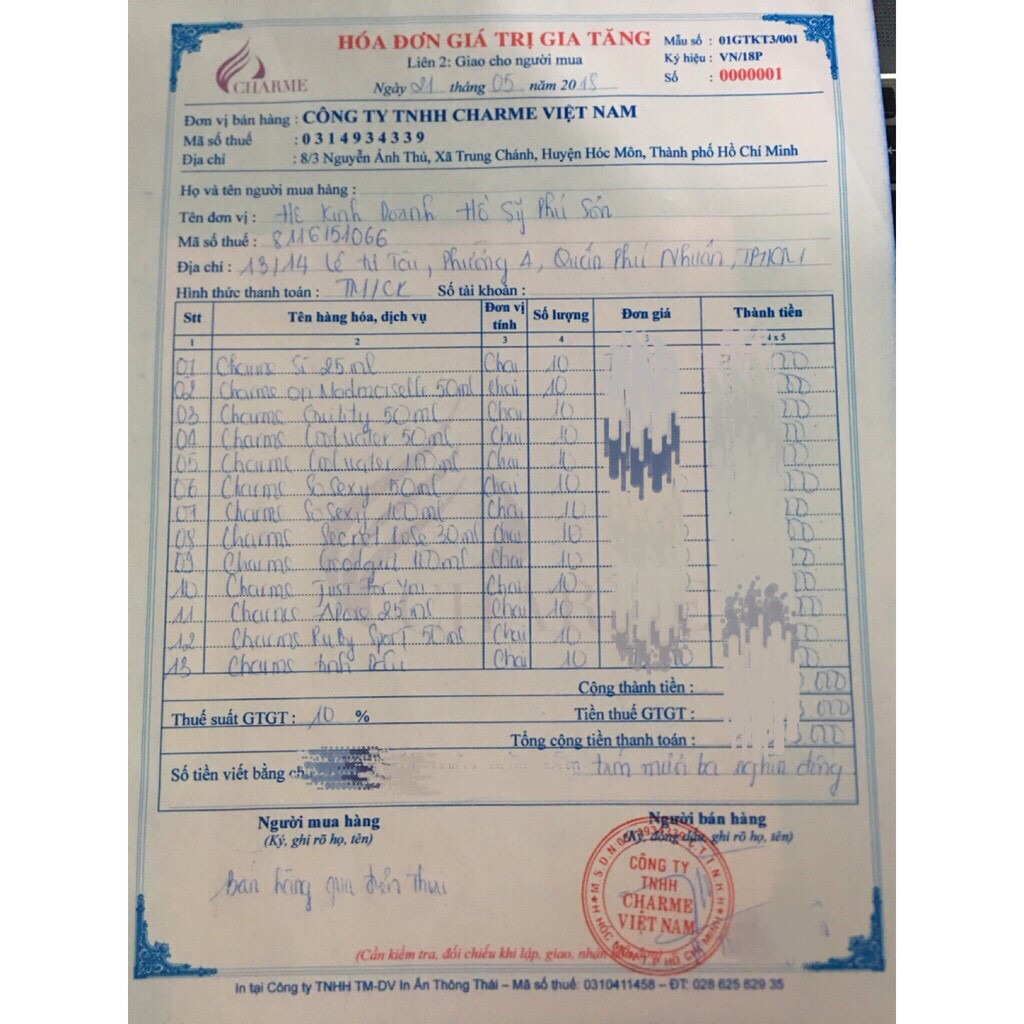 CHARME
HÓA ĐƠN GIÁ TRỊ GIA TĂNG
Liên 2: Giao cho người mua
Ngày 21 tháng 05 năm 2018
Mẫu số : 01GTKT3/001
Ký hiệu : VN/18P
Số : 0000001
Đơn vị bán hàng : CÔNG TY TNHH CHARME VIỆT NAM
Mã số thuế : 0314934339
Địa chỉ : 8/3 Nguyễn Ảnh Thủ, Xã Trung Chánh, Huyện Hóc Môn, Thành phố Hồ Chí Minh
Họ và tên người mua hàng :
Tên đơn vị : Hộ Kinh Doanh Hồ Sỹ Phú Sơn
Mã số thuế : 8116151066
Địa chỉ : 13/14 Lê Tự Tài, Phường 4, Quận Phú Nhuận, TPHCM
Hình thức thanh toán : TM/CK Số tài khoản :
Stt Tên hàng hóa, dịch vụ Đơn vị tính Số lượng Đơn giá Thành tiền
1 2 3 4 5 4 x 5
01 Charme Sī 25ml Chai 10
02 Charme on Madmoiselle 50ml Chai 10
03 Charme Guility 50ml Chai 10
04 Charme Coolwater 50ml Chai 10
05 Charme Coolwater 100ml Chai 10
06 Charme So Sexy 50ml Chai 10
07 Charme So Sexy 100ml Chai 10
08 Charme Secret Lose 30ml Chai 10
09 Charme Goodgirl 100ml Chai 10
10 Charme Just For You Chai 10
11 Charme 25ml Chai 10
12 Charme Ruby Sport 50ml Chai 10
13 Charme Tinh Dầu Chai 10
Cộng thành tiền : 000
Thuế suất GTGT : 10 % Tiền thuế GTGT : 000
Tổng cộng tiền thanh toán : 000
Số tiền viết bằng ch tám mươi ba nghìn đồng
Người mua hàng
(Ký, ghi rõ họ, tên)
bán hàng qua điện thoại
Người bán hàng
(Ký, đóng dấu, ghi rõ họ, tên)
CÔNG TY
TNHH
CHARME
VIỆT NAM
(Cần kiểm tra, đối chiếu khi lập, giao, nhận
In tại Công ty TNHH TM-DV In Ấn Thông Thái – Mã số thuế: 0310411458 – ĐT: 028 625 629 35